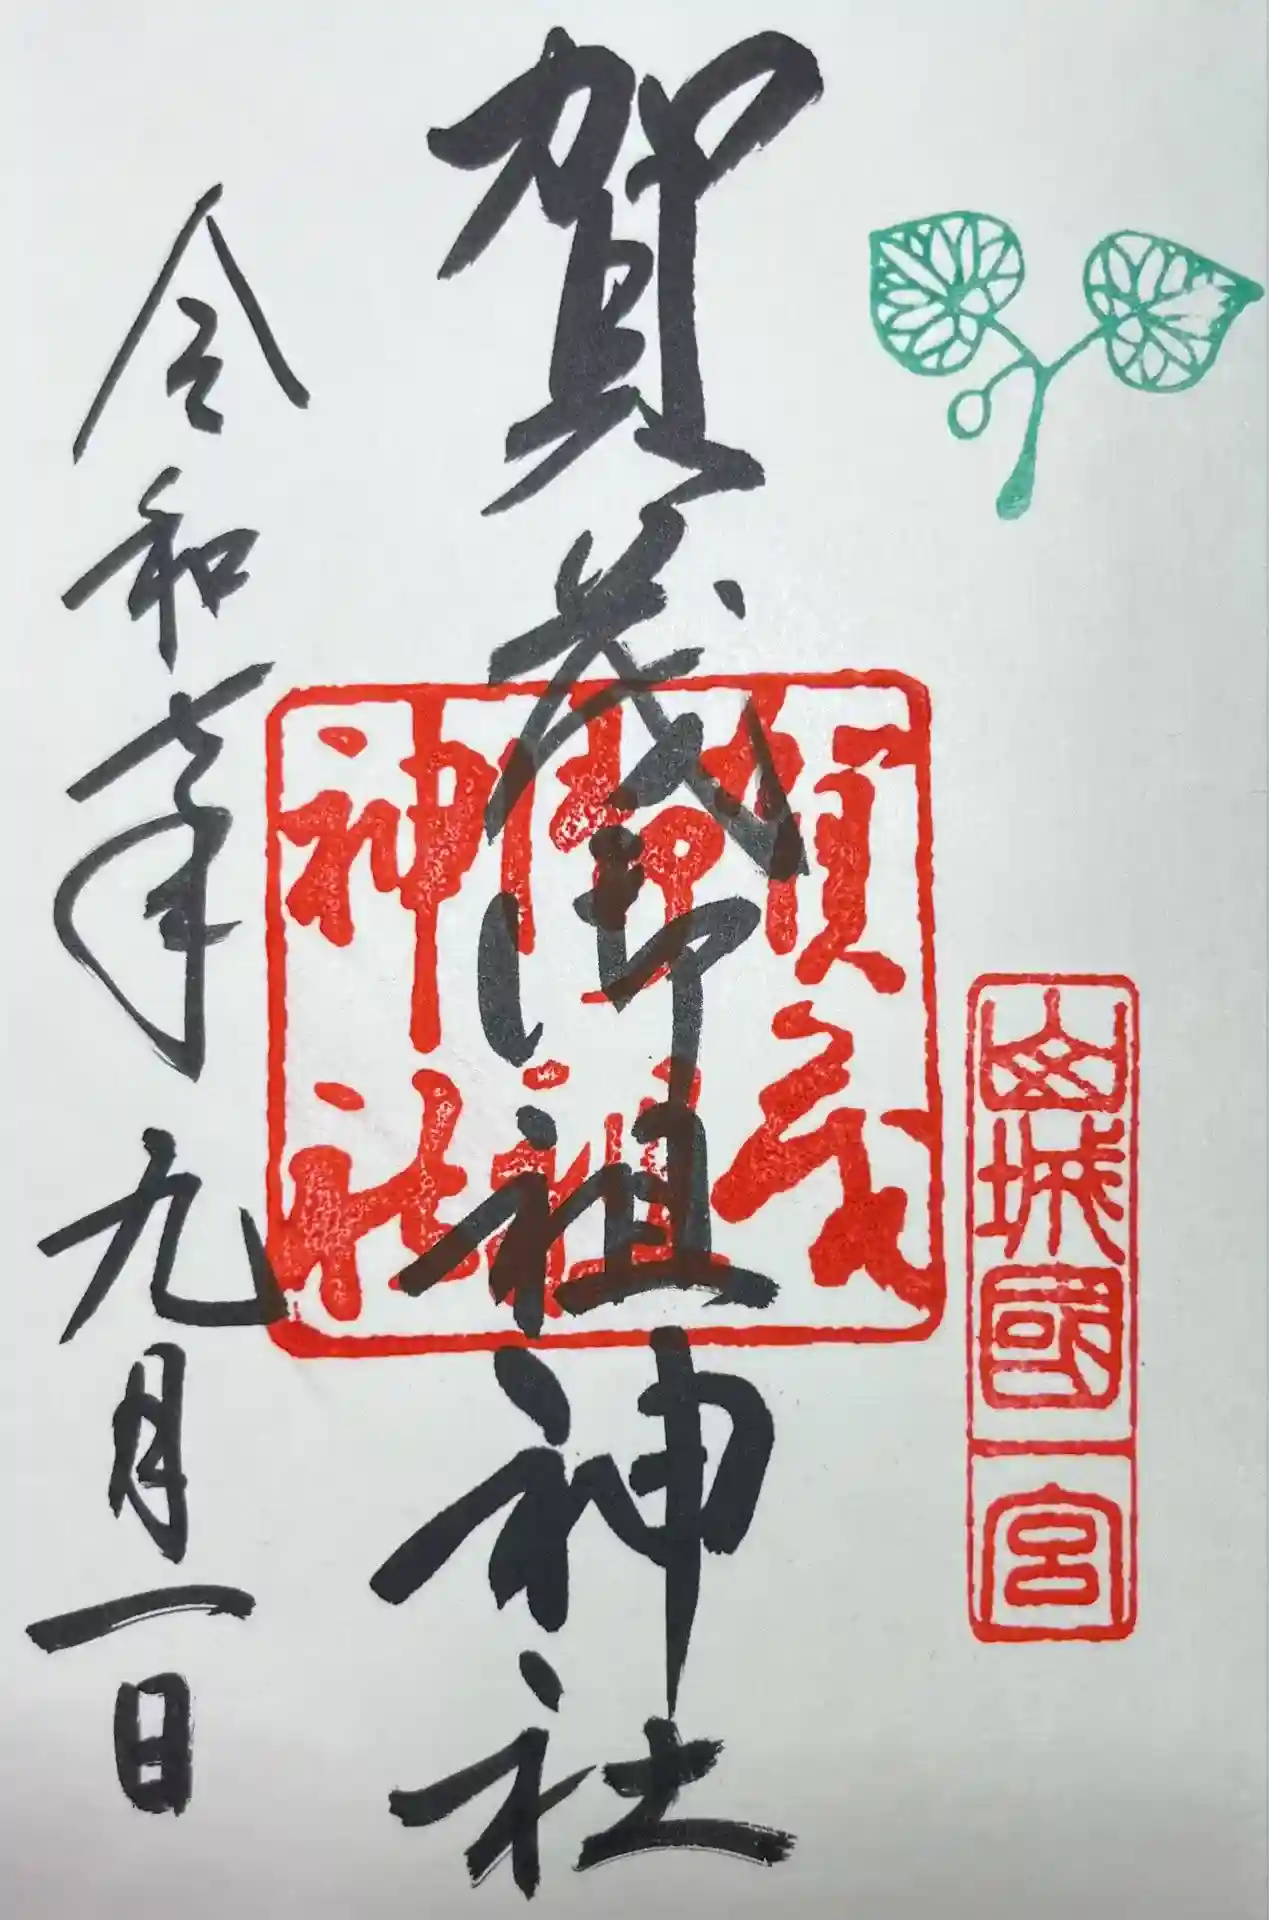 山城國一宮
賀茂御祖神社
賀茂
御祖
神社
令和 年九月一日